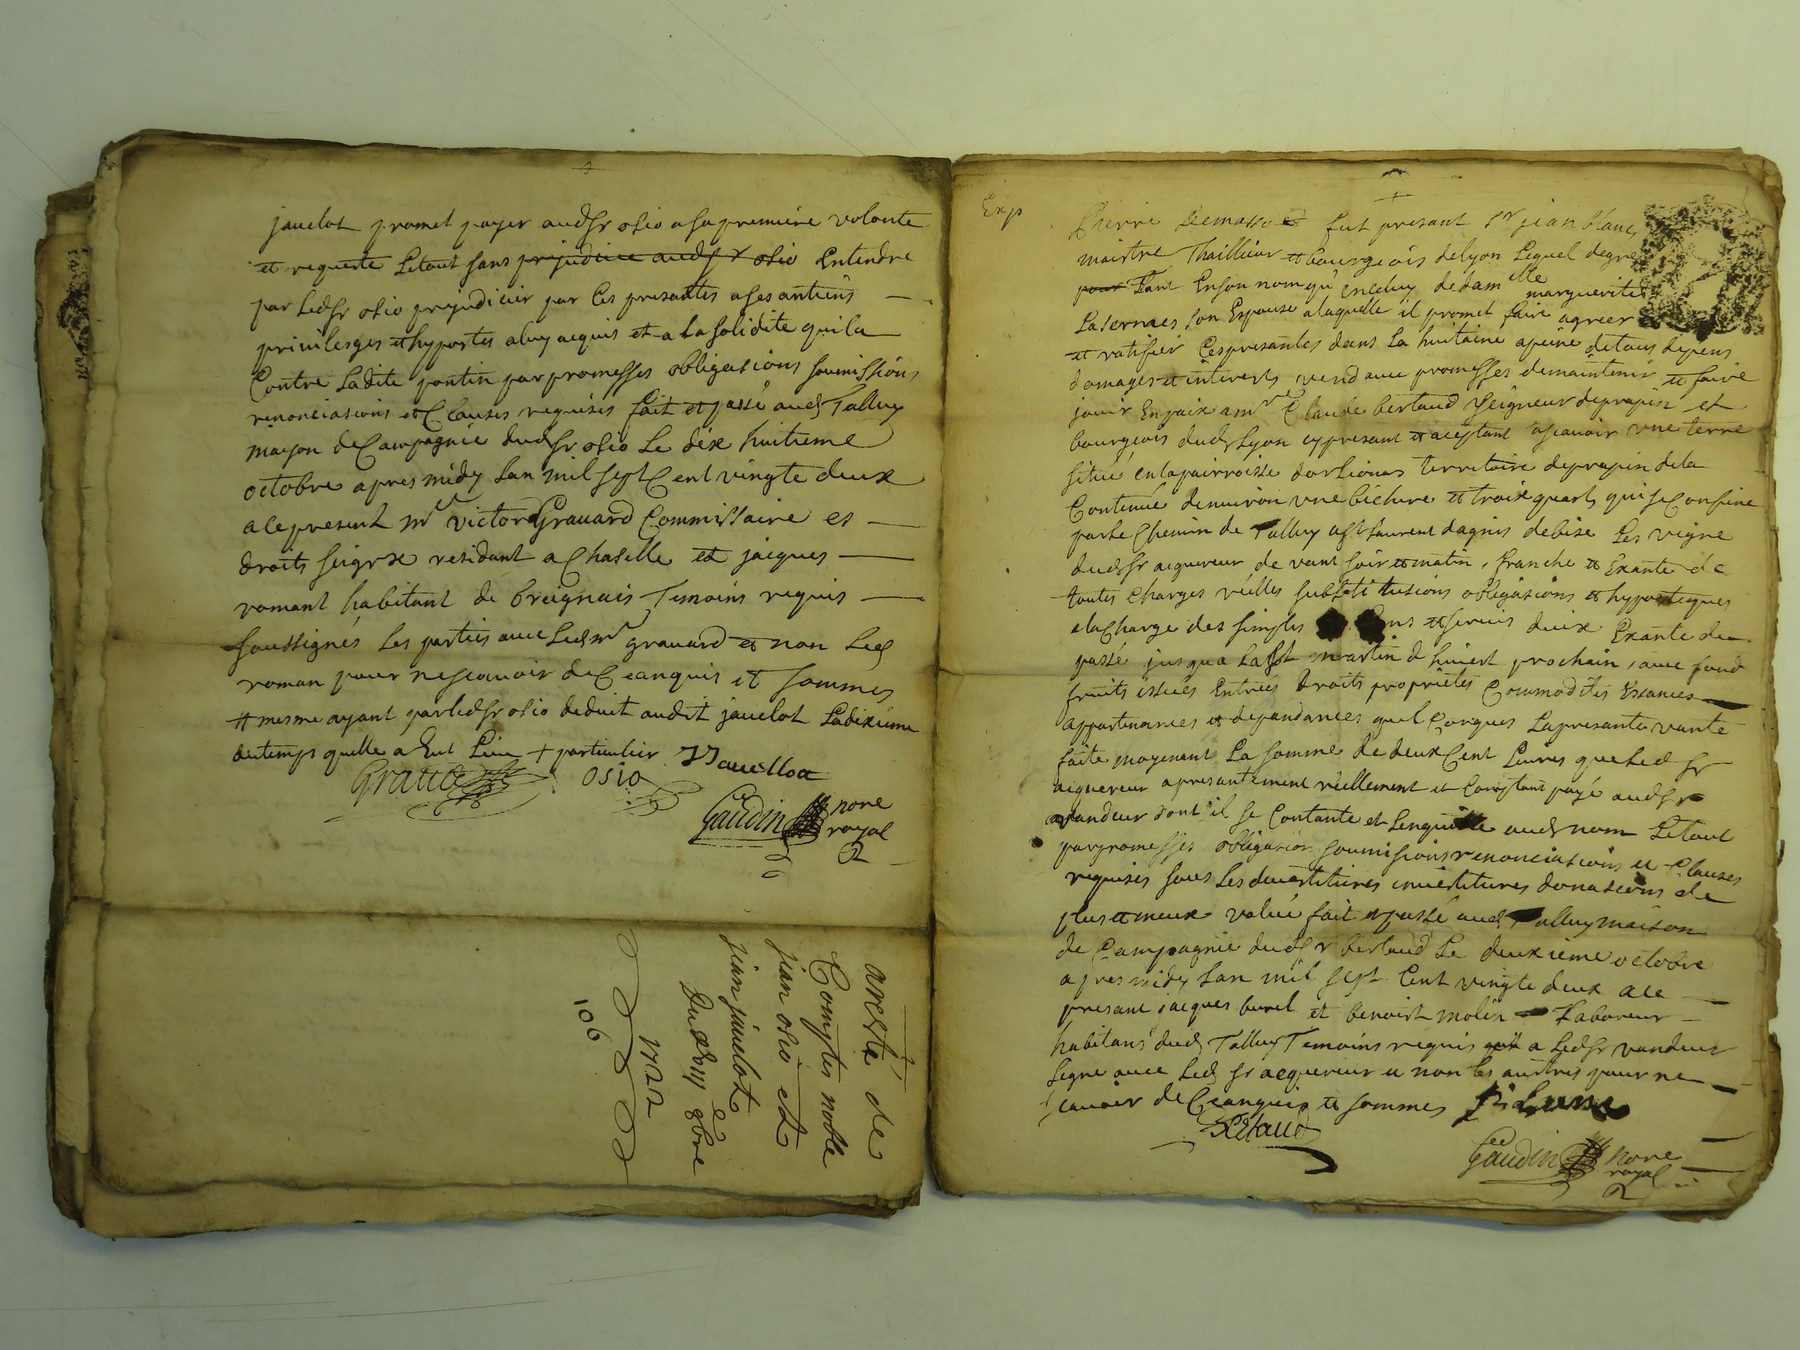 javelot promet payer audsr osio a sa premiere volonte
et requeste Letout sans prejudice audsr osio Entendre
par ledsr osio prejudicier par Ces presantes a ses antiens
privileges et hyportes a luy acquis et a la solidite quila
Contre Ladite pontin par promesses obligasions soumissions
renonciasions et Clauses requises fait et passé auds Talluy
mayson de Campagnie dudsr osio Le dix huitieme
octobre apres midy Lan mil sept Cent vingte deux
a ce present mr victor Gravard Commissaire es
droits seigrx residant a Chaselle et jacques
romant habitant de breignais Temoins requis
soussignés les parties avec Ledmr gravard et non Led
roman pour ne scavoir de Ce anquis et sommes
mesme ayant par ledsr osio deduit audit javelot Ladixieme
du temps quelle a Eut Lieu + particulier Javelloa
Gravard osio
Gaudin nore
royal
aresté de
Comptes noble
jean osio et
jean javelot
Du 18e 8bre
1722
106
Exp
Pierre demasso fut presant sr jean blanc
maistre Thaillieur et bourgeois de lyon Lequel degré
pour Tant En son nom qu'en celuy de damlle marguerite
Lasernaes son Espouse a laquelle il promet faire agreer
et ratifier Ces presantes dans La huitaine a peine de tous depens
domages et interests vend avec promesses de maintenir et faire
jouir En paix a mr Claude bertaud Seigneur de prapin et
bourgeois duds Lyon cy presant et aceptant ascavoir une terre
situé en la pairroisse dorlienas territoire de prapin de la
Contenüe denviron une bichere et troix quarts qui se Confine
par le Chemin de Talluy a st Laurent dagnis de bise Les vigne
dudsr aquereur de vant soir et matin, franche et Exante de
toutes Charges vielles substitusions obligasions et hypoteques
a la Charge des simples Cens et servis dirix Exante du
passé jusqua La st martin d hivert prochain, avec fond
fruits issües Entrées droits proprietés Commodités Exances
appartenances et depandances quel Conques La presante vante
faite moyenant La somme de deux Cent Livres que led sr
aiquereur a presantement réellement et Comptant payé audsr
vandeur dont il se Contante et Lenquitte auds nom Le tout
par promesses obligasion soumisions renonciasions et Clauses
requises sous Les devestitures investitures donasions de
plus et meux value fait et passé auds Talluy maison
de Campagnie dudsr bertaud Le deuxieme octobre
apres midy Lan mil sept Cent vingte deux a ce
presant jacques burel et benoist molin Laboreur
habitans duds Talluy Temoins requis a Ledsr vandeur
signe avec Leds sr acquereur et non les auttres pour ne
scavoir de Ce anquis et sommes J Blanc
Bertaud
Gaudin nore
royal